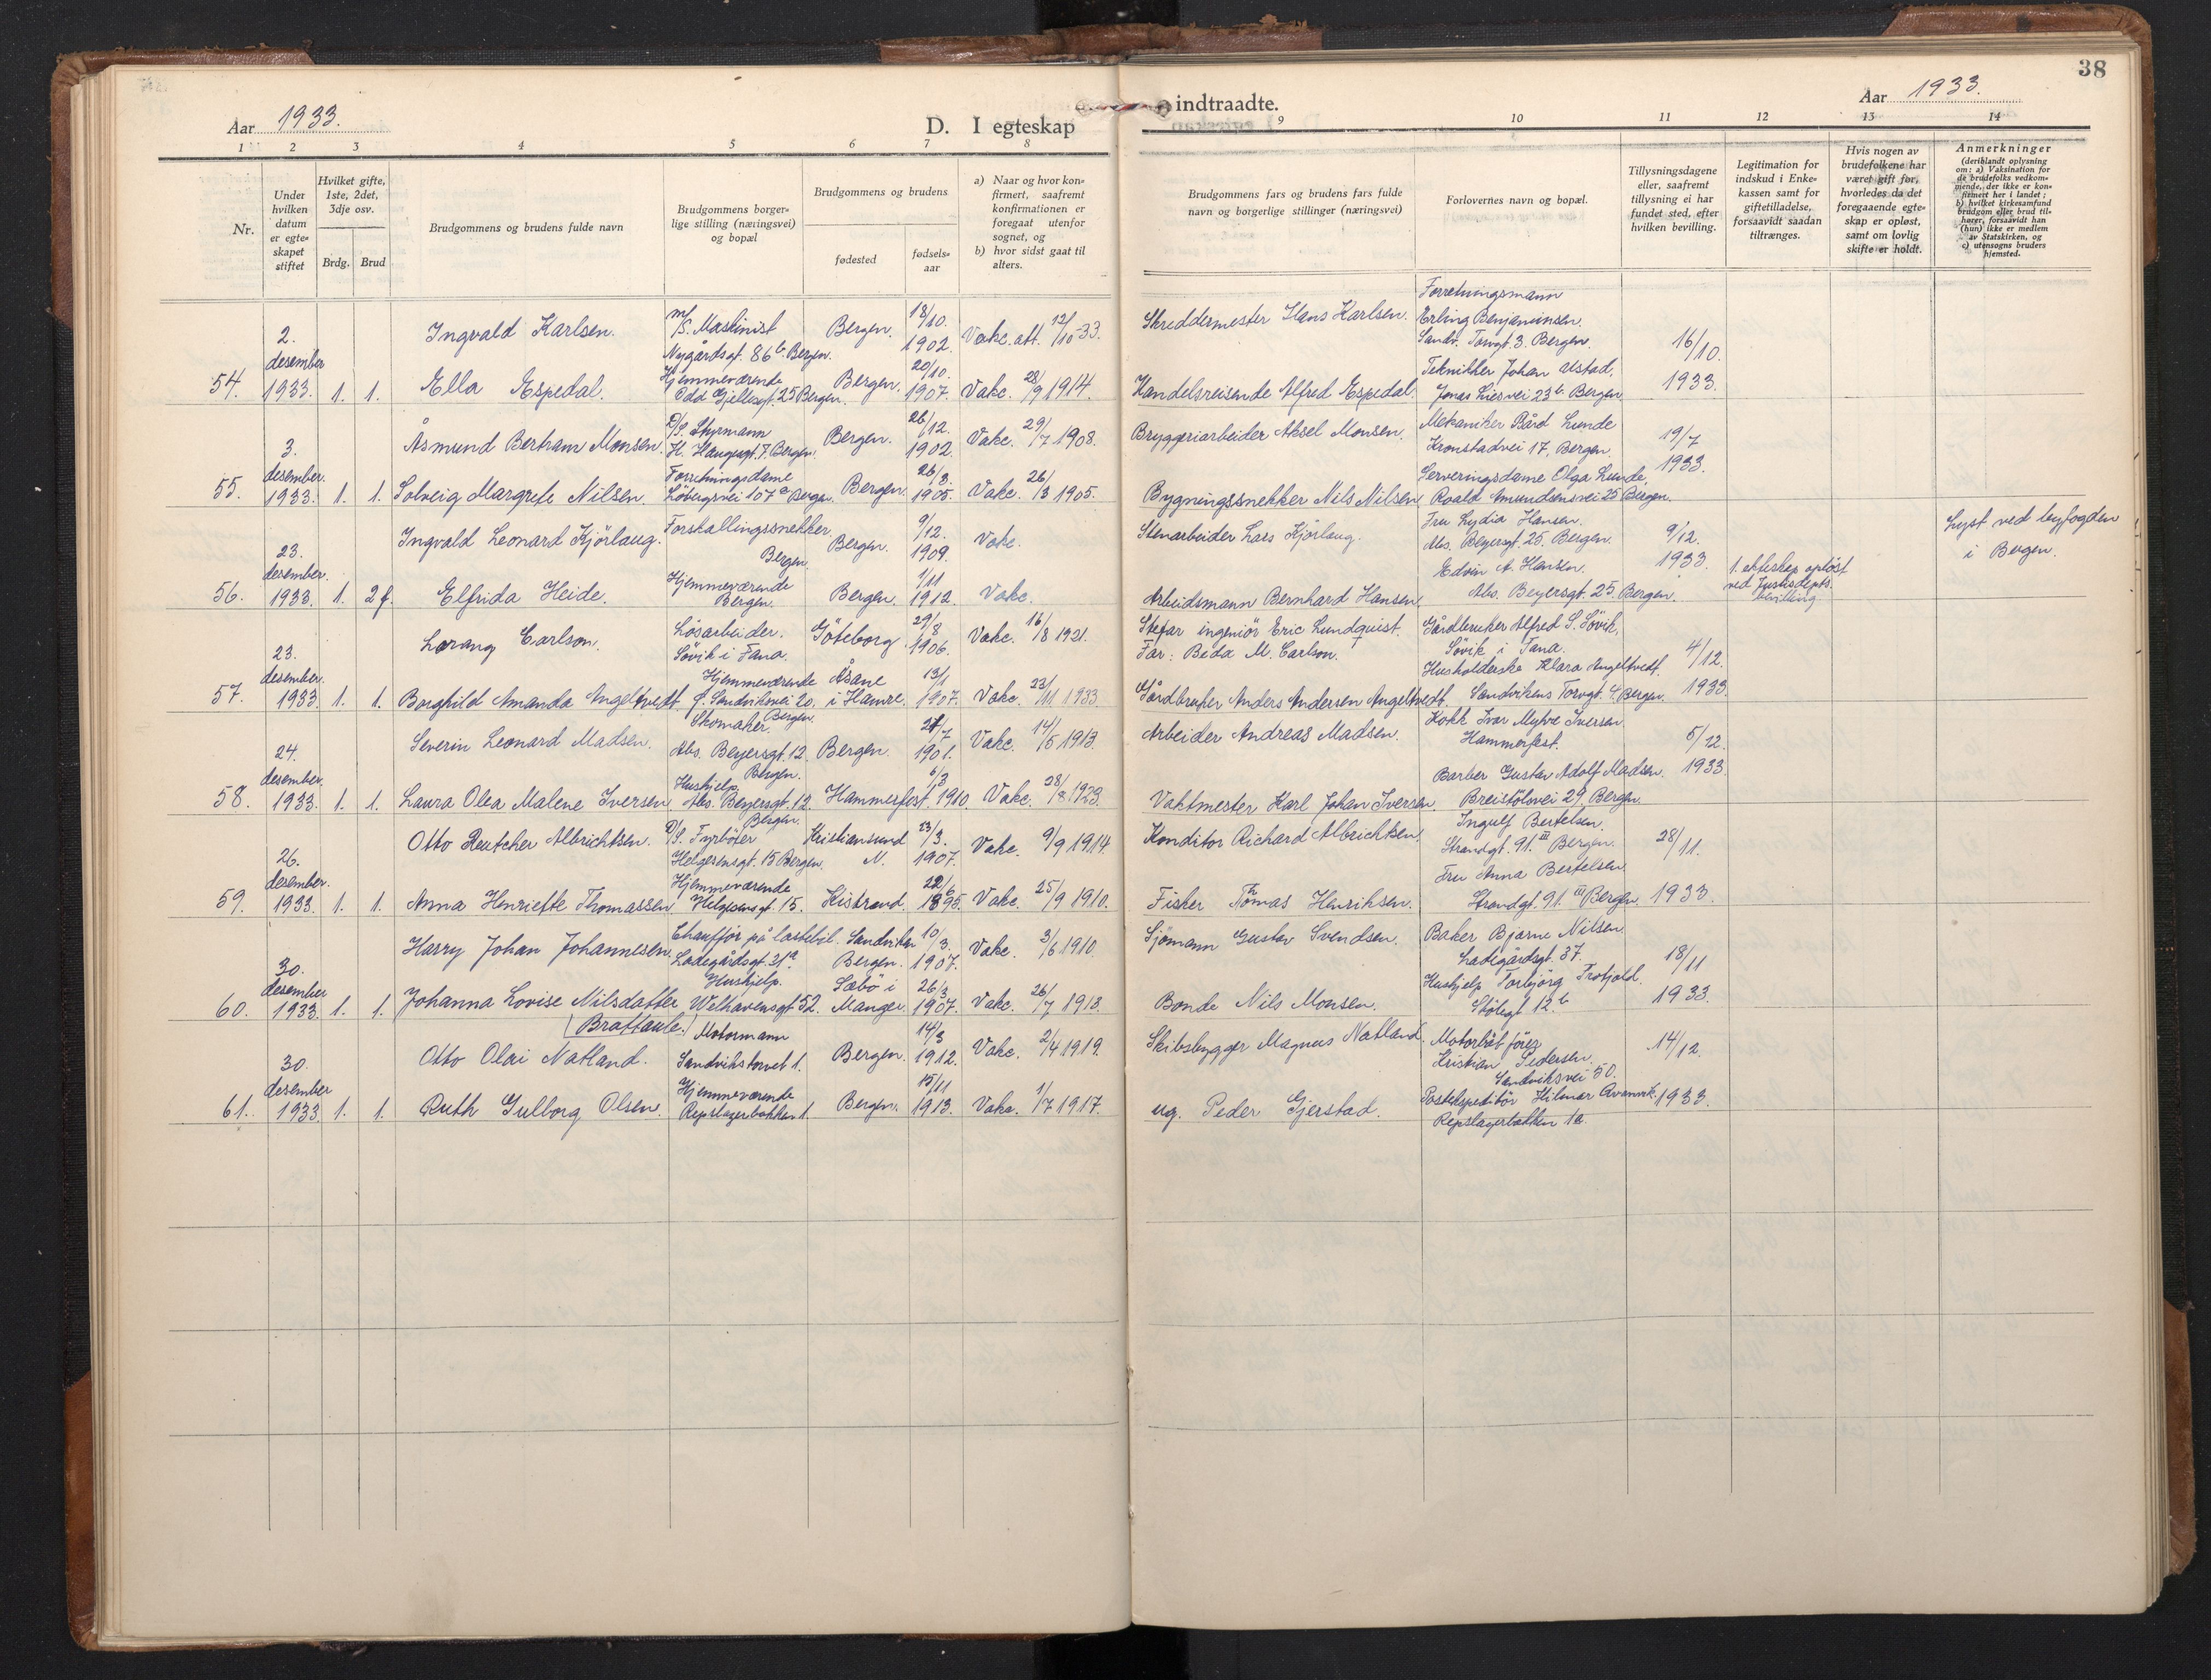 38
Aar 1933.
D. I egteskap
indtraadte.
Aar 1933.
1 2 3 4 5 6 7 8
9 10 11 12 13 14
Nr.
Under hvilken datum er egteskapet stiftet
Hvilket gifte, 1ste, 2det, 3dje osv.
Brdg. Brud
Brudgommens og brudens fulde navn
Brudgommens borgerlige stilling (næringsvei) og bopæl
Brudgommens og brudens
fødested
fødselsaar
a) Naar og hvor konfirmert, saafremt konfirmationen er foregaat utenfor sognet, og
b) hvor sidst gaat til alters.
Brudgommens fars og brudens fars fulde navn og borgerlige stillinger (næringsvei)
Forlovernes navn og bopæl.
Tillysningsdagene eller, saafremt tillysning ei har fundet sted, efter hvilken bevilling.
Legitimation for indskud i Enkekassen samt for giftetilladelse, forsaavidt saadan tiltrænges.
Hvis nogen av brudefolkene har været gift før, hvorledes da det foregaaende egteskap er opløst, samt om lovlig skifte er holdt.
Anmerkninger
(deriblandt oplysning om: a) Vaksination for de brudefolks vedkommende, der ikke er konfirmert her i landet; b) hvilket kirkesamfund brudgom eller brud tilhører, forsaavidt han (hun) ikke er medlem av Statskirken, og c) utensogns bruders hjemsted.
54. 2. desember 1933. 1. 1.
Ingvald Karlsen. m/S. Maskinist Nygårdsgt. 86 b Bergen. Bergen. 18/10. 1902. Vakc. att. 12/10-33. Skreddermester Hans Karlsen. Forretningsmann Erling Benjaminsen. Sandv. Torvgt. 3. Bergen. 16/10.
Ella Espedal. Hjemmeværende Odd Gjellesgt. 25 Bergen. Bergen. 20/10. 1907. Vakc. 28/9 1914. Handelsreisende Alfred Espedal. Tekniker Johan Alstad, Jonas Liesvei 23 b. Bergen 1933.
55. 3. desember. 1933. 1. 1.
Åsmund Bertram Monsen. D/S. Styrmann H. Haugesgt. 7. Bergen. Bergen. 26/12. 1902. Vakc. 29/7 1908. Bryggeriarbeider Aksel Monsen. Mekaniker Bård Lunde Kronstadvei 17, Bergen. 19/7
Solveig Margrete Nilsen. Forretningsdame Löbergsvei 107 a Bergen. Bergen. 26/3. 1905. Vakc. 26/3 1905. Bygningssnekker Nils Nilsen. Serveringsdame Olga Lunde, Roald Amundsensvei 25 Bergen. 1933.
56. 23. desember. 1933. 1. 2 f.
Ingvald Leonard Kjörlaug. Forskallingssnekker. Bergen. Bergen. 9/12. 1909. Vakc. Stenarbeider Lars Kjörlaug. Fru Lydia Hansen. Abs. Beyersgt. 25. Bergen. 9/12. Lyst ved byfogden i Bergen.
Elfrida Heide. Hjemmeværende Bergen. Bergen. 1/11 1912. Vakc. Arbeidsmann Bernhard Hansen. Edvin A. Hansen. Abs. Beyersgt. 25. Bergen. 1933. 1. ekteskap opløst ved Justisdepts. bevilling.
57. 23. desember. 1933. 1. 1.
Lorang Carlson. Løsarbeider. Søvik i Fana. Göteborg. 29/8 1906. Vakc. 16/8 1921. Stefar ingeniør Eric Lundquist. Far: Beda M. Carlson. Gårdbruker Alfred S. Søvik, Søvik i Fana. 4/12.
Borghild Amanda Angeltvedt. Hjemmeværende Sandviksvei 20. Bergen. Åsane i Hamre. 13/1 1907. Vakc. 23/11 1933. Gårdbruker Anders Andersen Angeltvedt. Husholderske Klara Angeltvedt. Sandvikens Torvgt. 4. Bergen. 1933.
58. 24. desember. 1933. 1. 1.
Severin Leonard Madsen. Skomaker. Abs. Beyersgt. 12. Bergen. Bergen. 21/7 1901. Vakc. 14/5 1913. Arbeider Andreas Madsen. Kokk Ivar Myhre Iversen Hammerfest. 5/12.
Laura Olea Malene Iversen. Hushjelp. Abs. Beyersgt. 12. Bergen. Hammerfest. 6/3 1910. Vakc. 28/8 1923. Vaktmester Karl Johan Iversen. Barber Gustav Adolf Madsen. Breistölsvei 29, Bergen. 1933.
59. 26. desember. 1933. 1. 1.
Otto Reutcher Albrichtsen. D/S. Fyrböter Helgesensgt. 15 Bergen. Kristiansund N. 23/3. 1907. Vakc. 9/9 1914. Konditor Richard Albrichtsen. Ingulf Bertelsen. Strandgt. 91. III Bergen. 28/11.
Anna Henriette Thomassen. Hjemmeværende Helgesensgt. 15. Kistrand. 22/6. 1895. Vakc. 25/9 1910. Fisker Thomas Henriksen. Fru Anna Bertelsen Strandgt. 91. III Bergen. 1933.
60. 30. desember 1933. 1. 1.
Harry Johan Johannesen. Chauffør på lastebil. Ladegårdsgt. 21 a. Sandviken Bergen. 10/3. 1907. Vakc. 3/6 1910. Sjömann Gustav Svendsen. Baker Bjarne Nilsen Ladegårdsgt. 37. 18/11
Johanna Lovise Nilsdatter (Brattaule.) Hushjelp. Welhavensgt 52. Sæbö i Manger. 26/3 1907. Vakc. 26/7 1913. Bonde Nils Monsen. Hushjelp Torbjörg Trofjold. Stölegt 12 b 1933.
61. 30. desember 1933. 1. 1.
Otto Olai Natland. Motormann Sandvikstorvet 1. Bergen. 14/3 1912. Vakc. 2/4 1919. Skibsbygger Magnus Natland. Motorbåt fører Kristian Pedersen. Sandviksvei 50. 14/12.
Ruth Gulborg Olsen. Hjemmeværende Repslagerbakken 1. Bergen. 15/11 1913. Vakc. 1/7 1917. ug. Peder Gjerstad. Postekspeditör Hilmar Repslagerbakken 1 a. 1933.